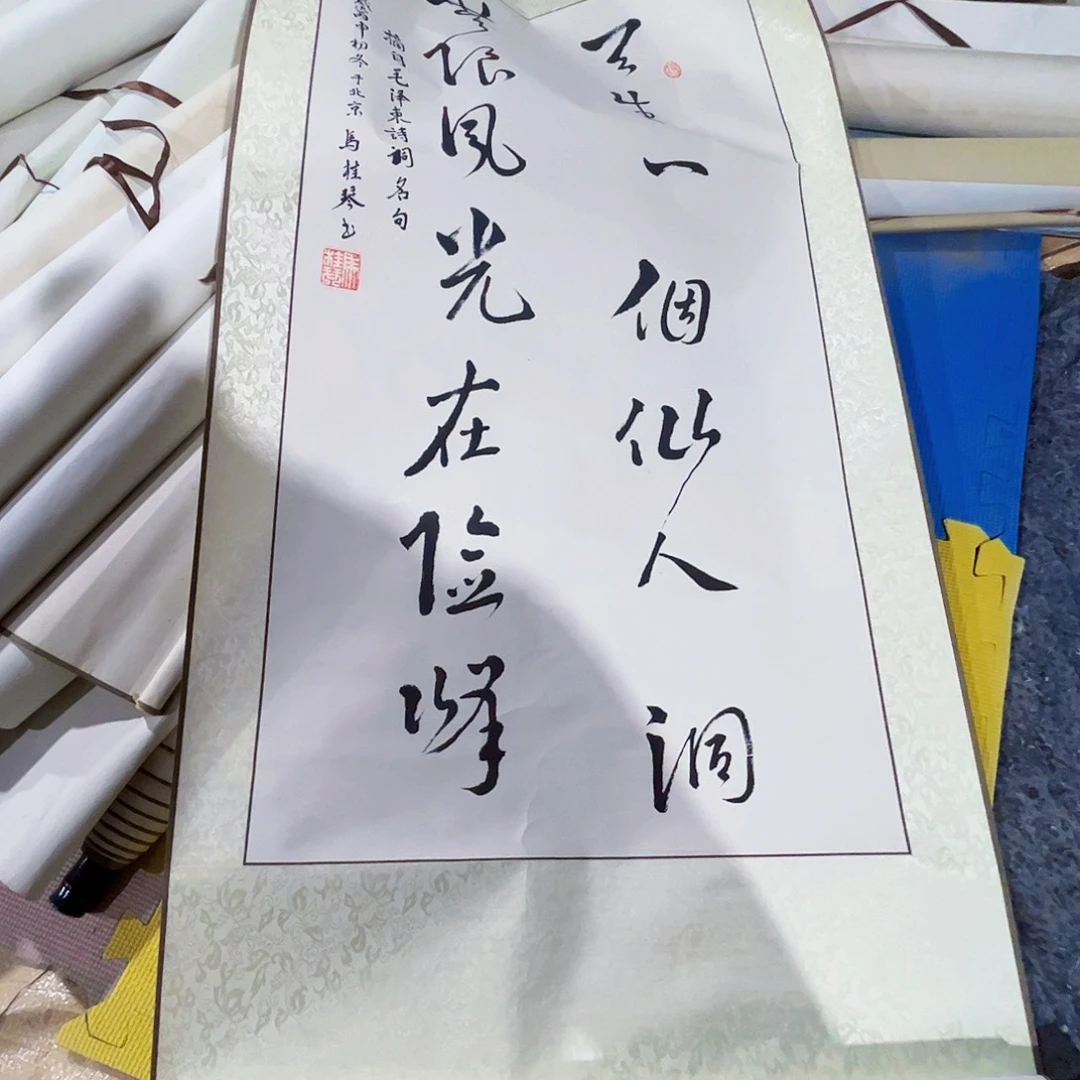 天生一個仙人洞
無限風光在险峰
摘自毛泽東詩詞名句
初冬于北京 馬桂琴书